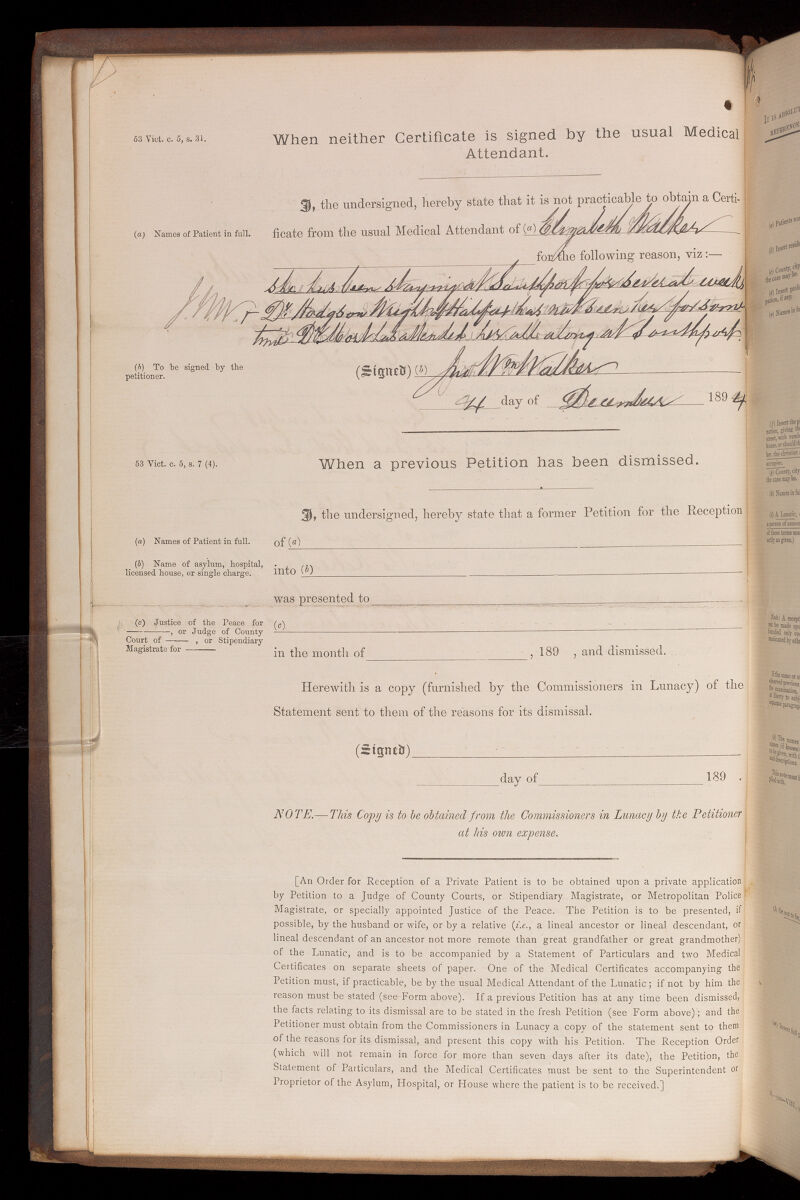 53 Vict. c. 5, s. 31.
When neither Certificate is signed by the usual Medical
Attendant.
I, the undersigned, hereby state that it is not practicable to obtain a Certi-
(a) Names of Patient in full.
ficate from the usual Medical Attendant of (a) Elizabeth Walker
for the following reason, viz:—
She has been staying at Southport for several weeks
J.W.W. & Dr. Hodgson Wright of Halifax has not seen her for some
time. Dr. has attended her all along at Southport.
(b) To be signed by the
petitioner.
(Signed) (b) Jno Wm Walker
4 day of December 1894
53 Vict. c. 5, s. 7 (4).
When a previous Petition has been dismissed.
I, the undersigned, hereby state that a former Petition for the Reception
(a) Names of Patient in full.
of (a)
(b) Name of asylum, hospital,
licensed house, or single charge.
into (b)
was presented to
(c) Justice of the Peace for
———, or Judge of County
Court of ——— , or Stipendiary
Magistrate for ———
(c)
in the month of , 189 , and dismissed.
Herewith is a copy (furnished by the Commissioners in Lunacy) of the
Statement sent to them of the reasons for its dismissal.
(Signed)
day of 189 .
NOTE.—This Copy is to be obtained from the Commissioners in Lunacy by the Petitioner
at his own expense.
[An Order for Reception of a Private Patient is to be obtained upon a private application
by Petition to a Judge of County Courts, or Stipendiary Magistrate, or Metropolitan Police
Magistrate, or specially appointed Justice of the Peace. The Petition is to be presented, if
possible, by the husband or wife, or by a relative (i.e., a lineal ancestor or lineal descendant, or
lineal descendant of an ancestor not more remote than great grandfather or great grandmother)
of the Lunatic, and is to be accompanied by a Statement of Particulars and two Medical
Certificates on separate sheets of paper. One of the Medical Certificates accompanying the
Petition must, if practicable, be by the usual Medical Attendant of the Lunatic; if not by him the
reason must be stated (see Form above). If a previous Petition has at any time been dismissed,
the facts relating to its dismissal are to be stated in the fresh Petition (see Form above); and the
Petitioner must obtain from the Commissioners in Lunacy a copy of the statement sent to them
of the reasons for its dismissal, and present this copy with his Petition. The Reception Order
(which will not remain in force for more than seven days after its date), the Petition, the
Statement of Particulars, and the Medical Certificates must be sent to the Superintendent or
Proprietor of the Asylum, Hospital, or House where the patient is to be received.]